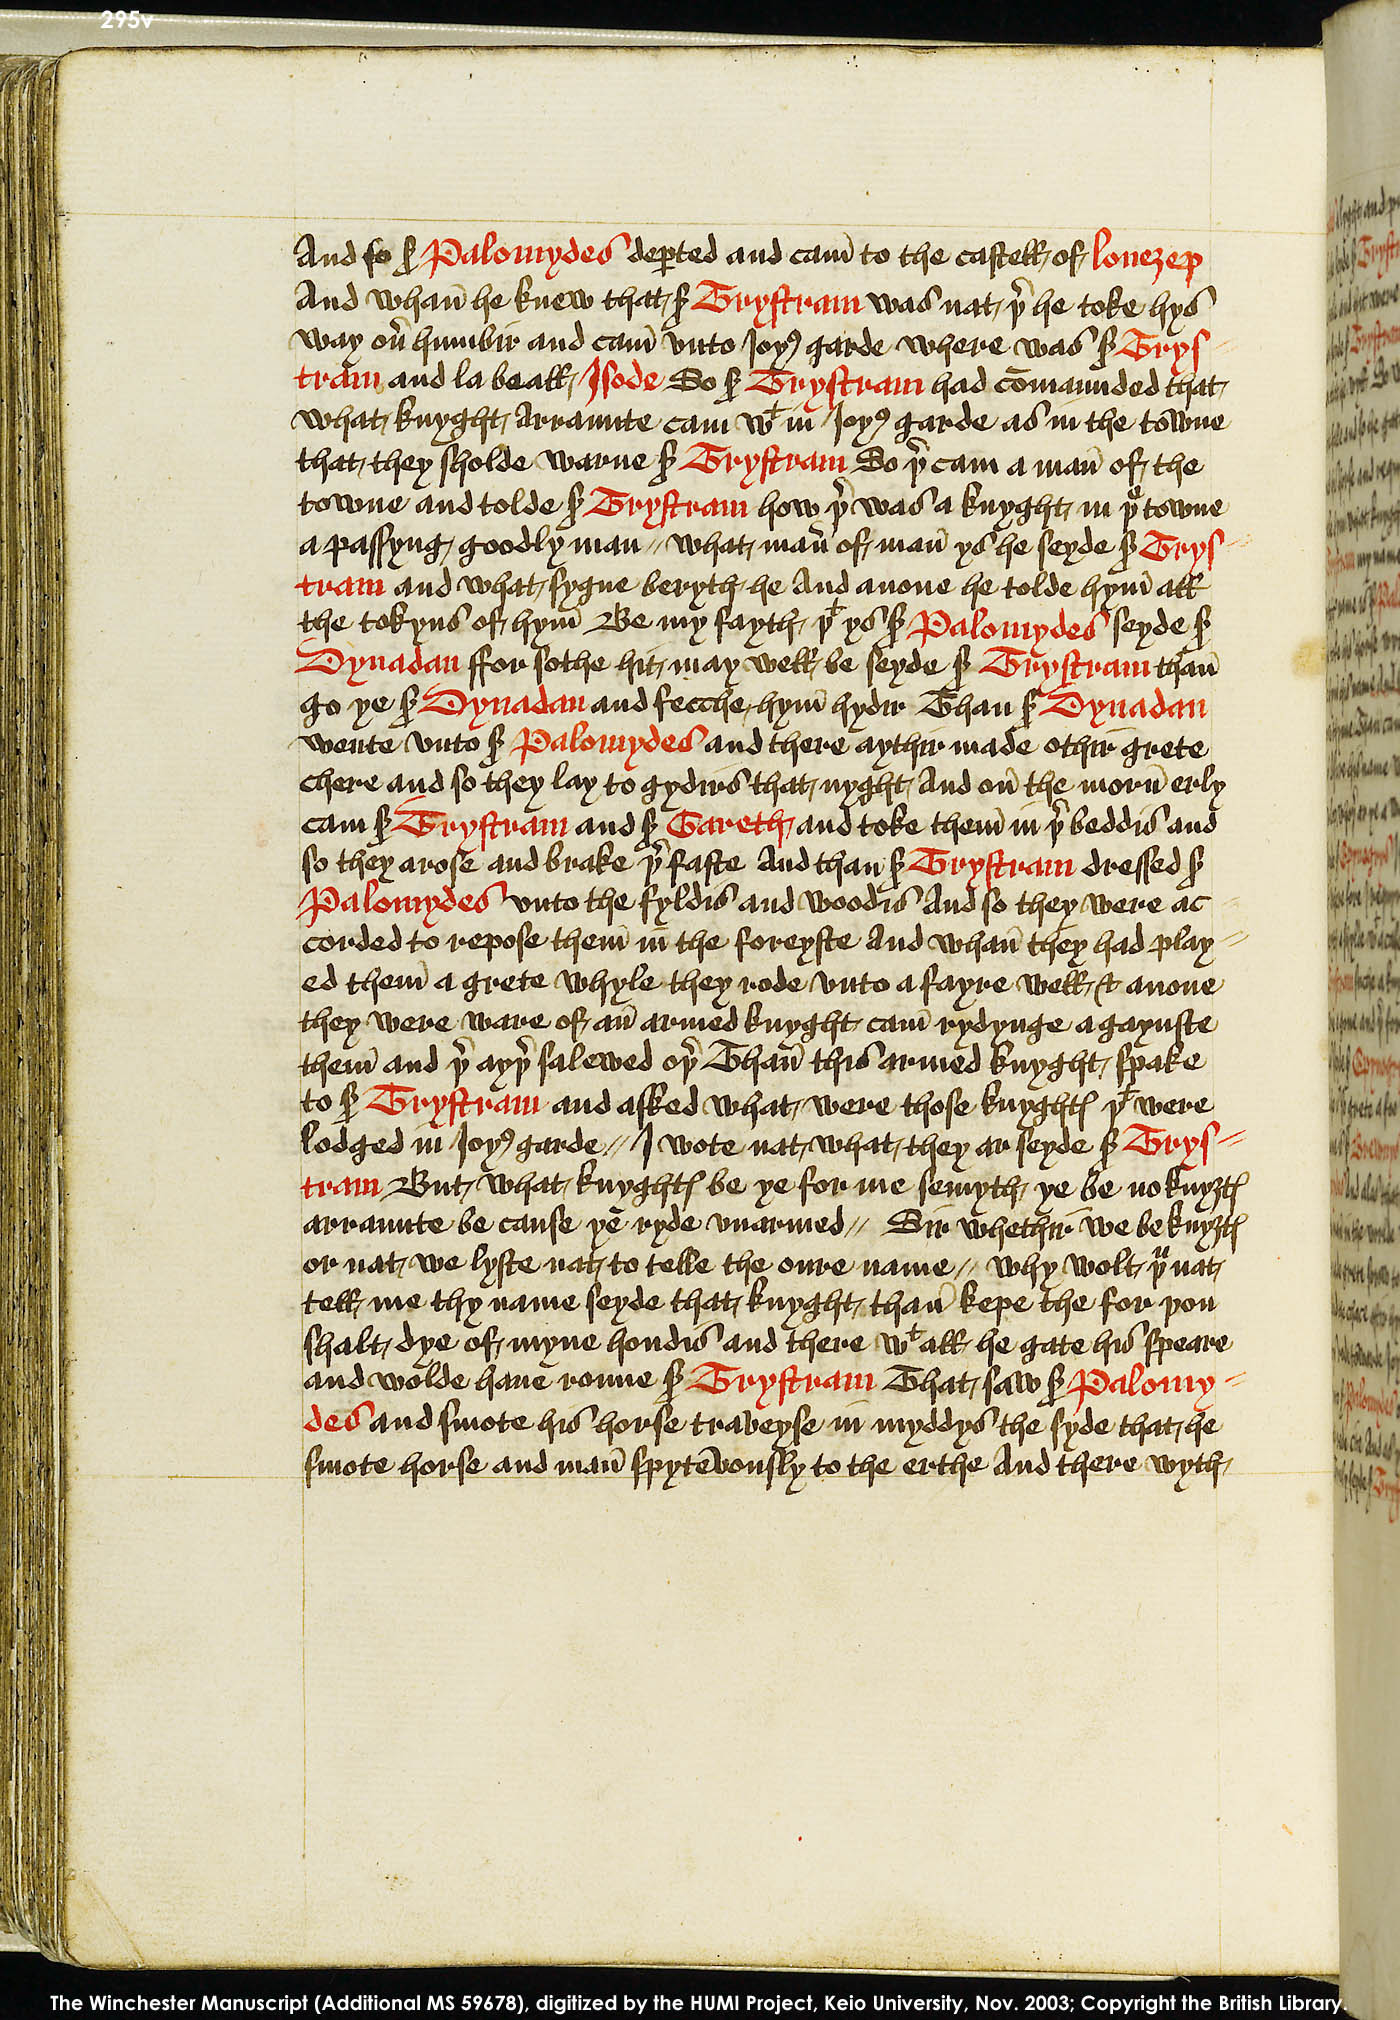 295v
And so sˀ Palomydes deꝑted and cam̄ to the castell of lonezep
And whan̄ he knew that sˀ Trystram was nat þ͛ he toke hys
way ou͛ humbir and cam̄ vnto Joyꝰ garde where was sˀ Trys=
tram and la beall Isode So sˀ Trystram had cōmaunded that
what knyght Arraunte cam wᵗ in Joyꝰ garde as in the towne
that they sholde warne sˀ Trystram So þ͛ cam a man̄ of the
towne and tolde sˀ Trystram how þ͛ was a knyght in þᵉ towne
a passyng goodly man // what man͛ of man̄ ys he seyde sˀ Trys=
tram and what sygne beryth he And anone he tolde hym̄ all
the tokyns of hym̄ Be my fayth þᵗ ys sˀ Palomydes seyde sˀ
Dynadan ffor sothe hit may well be seyde sˀ Trystram than̄
go ye sˀ Dynadan and fecche hym̄ hydir Than sˀ Dynadan
wente vnto sˀ Palomydes and there aythir made othir grete
chere and so they lay to gydirs that nyght And on̄ the morn̄ erly
cam sˀ Trystram and sˀ Gareth and toke them̄ in þ͛ beddis and
so they arose and brake þ͛ faste And than sˀ Trystram dressed sˀ
Palomydes vnto the fyldis and woodis And so they were ac=
corded to repose them̄ in the foreyste And whan̄ they had play=
ed them̄ a grete whyle they rode vnto a fayre well & anone
they were ware of an̄ armed knyght cam̄ rydynge agaynste
them̄ and þ͛ ayþ͛ salewed oþ͛ Than̄ this armed knyght spake
to sˀ Trystram and asked what were those knyghtꝭ þᵗ were
lodged in Joyꝰ garde // I wote nat what they ar seyde sˀ Trys=
tram But what knyghtꝭ be ye for me semyth ye be no knyȝtꝭ
arraunte be cause ye ryde vnarmed // Sir whethir we be knyȝtꝭ
or nat we lyste nat to telle the oure name // why wolt þᵘ nat
tell me thy name seyde that knyght than̄ kepe the for þou
shalt dye of myne hondis and there wᵗ all he gate his speare
and wolde haue ronne sˀ Trystram That saw sˀ Palomy=
des and smote his horse traveyse in myddys the syde that he
smote horse and man̄ spytevously to the erthe And there wyth
The Winchester Manuscript (Additional MS 59678), digitized by the HUMI Project, Keio University, Nov. 2003; Copyright the British Library.